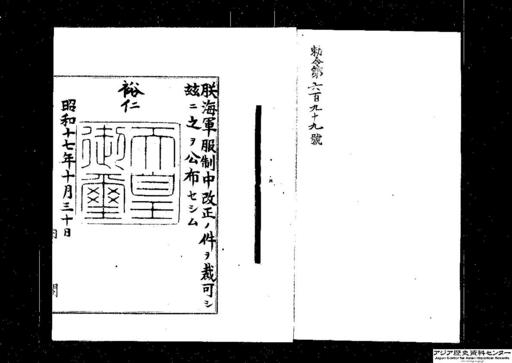 勅令第六百九十九號
朕海軍服制中改正ノ件ヲ裁可シ
玆ニ之ヲ公布セシム
裕仁
天皇御璽
昭和十七年十月三十日
内閣
アジア歴史資料センター
Japan Center for Asian Historical Records